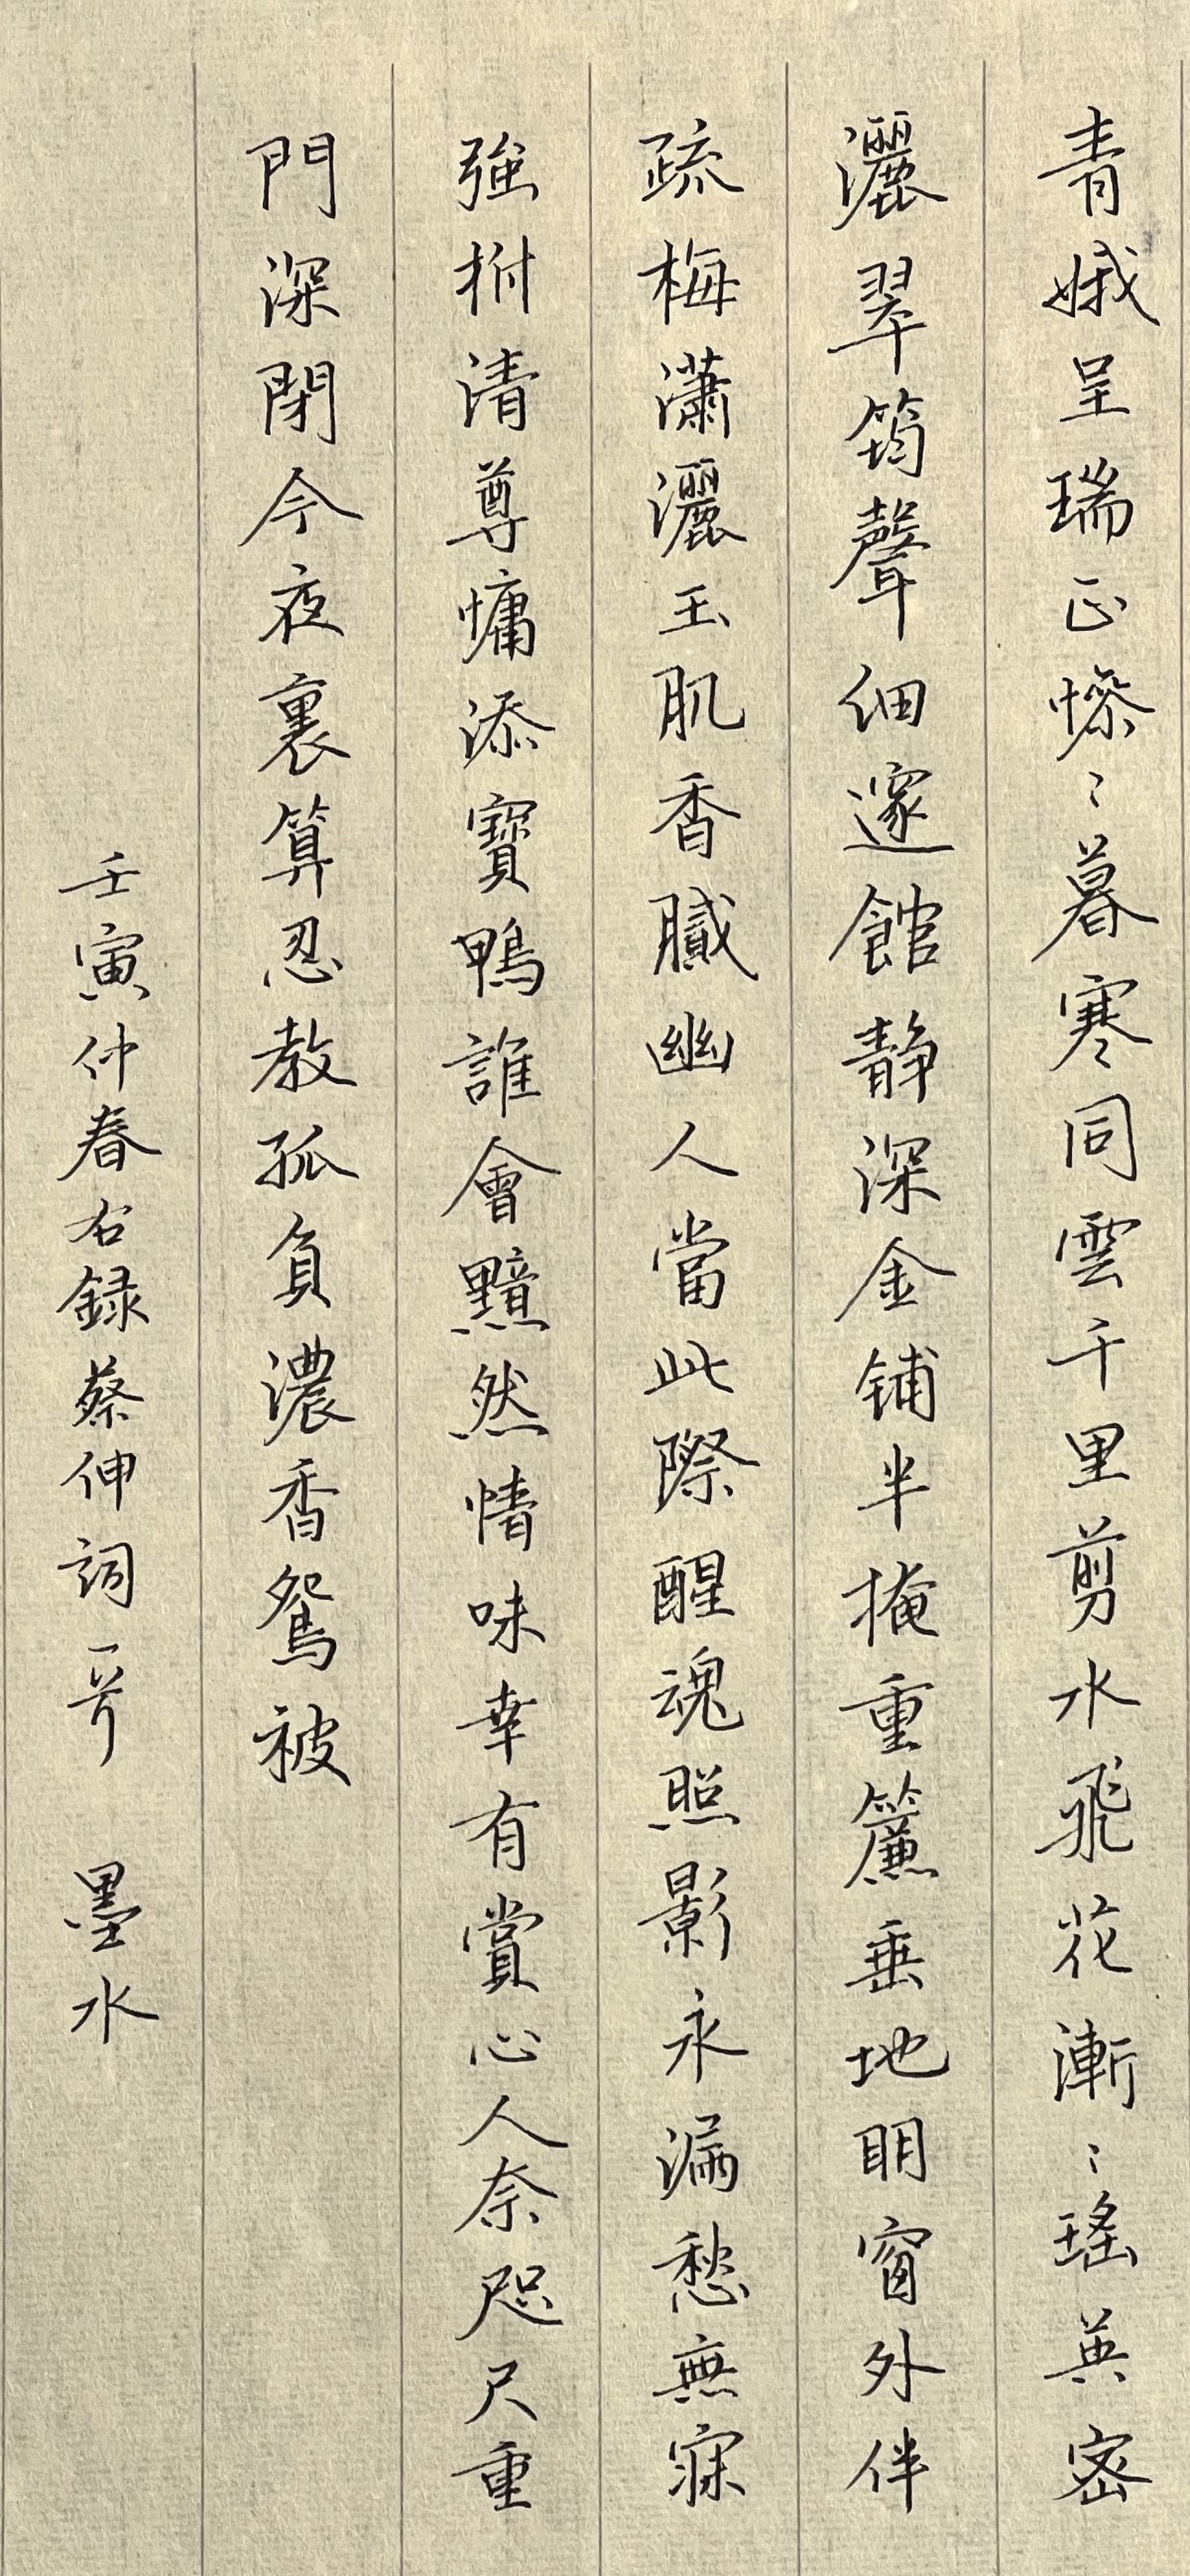 青娥呈瑞正慘〻暮寒同雲千里剪水飛花漸〻瑤英密
灑翠筠聲細邃館靜深金鋪半掩重簾垂地明窗外伴
疏梅瀟灑玉肌香膩幽人當此際醒魂照影永漏愁無寐
強拊清尊慵添寶鴨誰會黯然情味幸有賞心人奈咫尺重
門深閉今夜裏算忍教孤負濃香鴛被
壬寅仲春右錄蔡伸詞一首 墨水